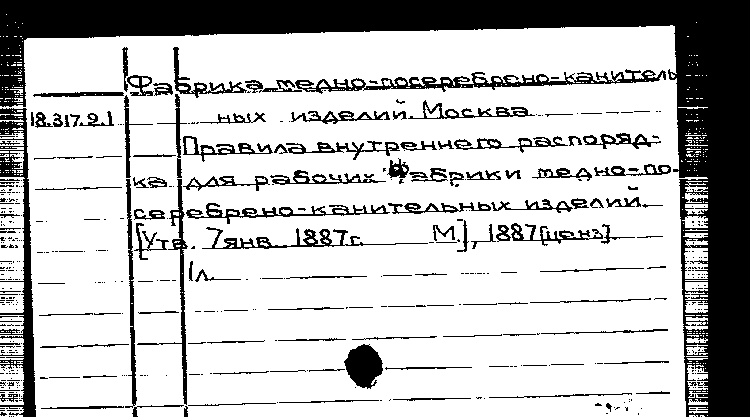 Фабрика медно-посеребрено-канитель
18.317.9.1 ных изделий. Москва
Правила внутреннего распоряд-
ка для рабочих Фабрики медно-по-
серебрено-канительных изделий.
[Утв. 7 янв. 1887г. М.], 1887 [ценз].
1л.